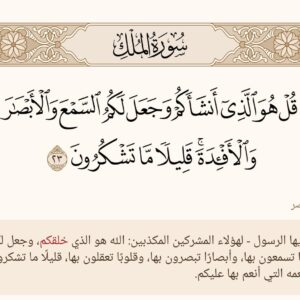 سُورَةُ المُلْكِ
قُلْ هُوَ ٱلَّذِىٓ أَنشَأَكُمْ وَجَعَلَ لَكُمُ ٱلسَّمْعَ وَٱلْأَبْصَٰرَ
وَٱلْأَفْـِٔدَةَ ۖ قَلِيلًا مَّا تَشْكُرُونَ ٢٣
الرسول - لهؤلاء المشركين المكذبين: الله هو الذي خلقكم، وجعل
تسمعون بها، وأبصارًا تبصرون بها، وقلوبًا تعقلون بها، قليلًا ما
التي أنعم بها عليكم.